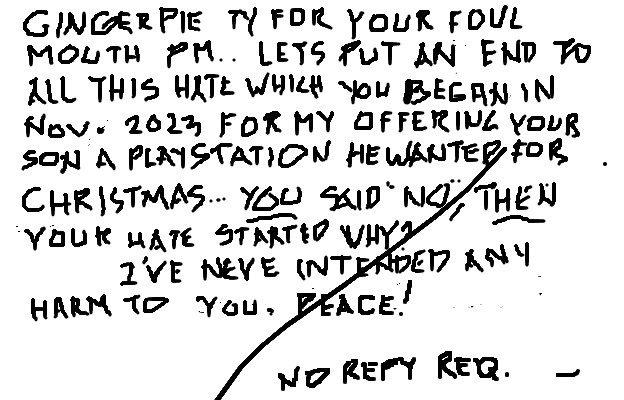 GINGERPIE TY FOR YOUR FOUL
MOUTH PM.. LETS PUT AN END TO
ALL THIS HATE WHICH YOU BEGAN IN
NOV. 2023 FOR MY OFFERING YOUR
SON A PLAYSTATION HE WANTED FOR
CHRISTMAS... YOU SAID "NO", THEN
YOUR HATE STARTED WHY?
I'VE NEVE INTENDED ANY
HARM TO YOU. PEACE!
NO REPY REQ.